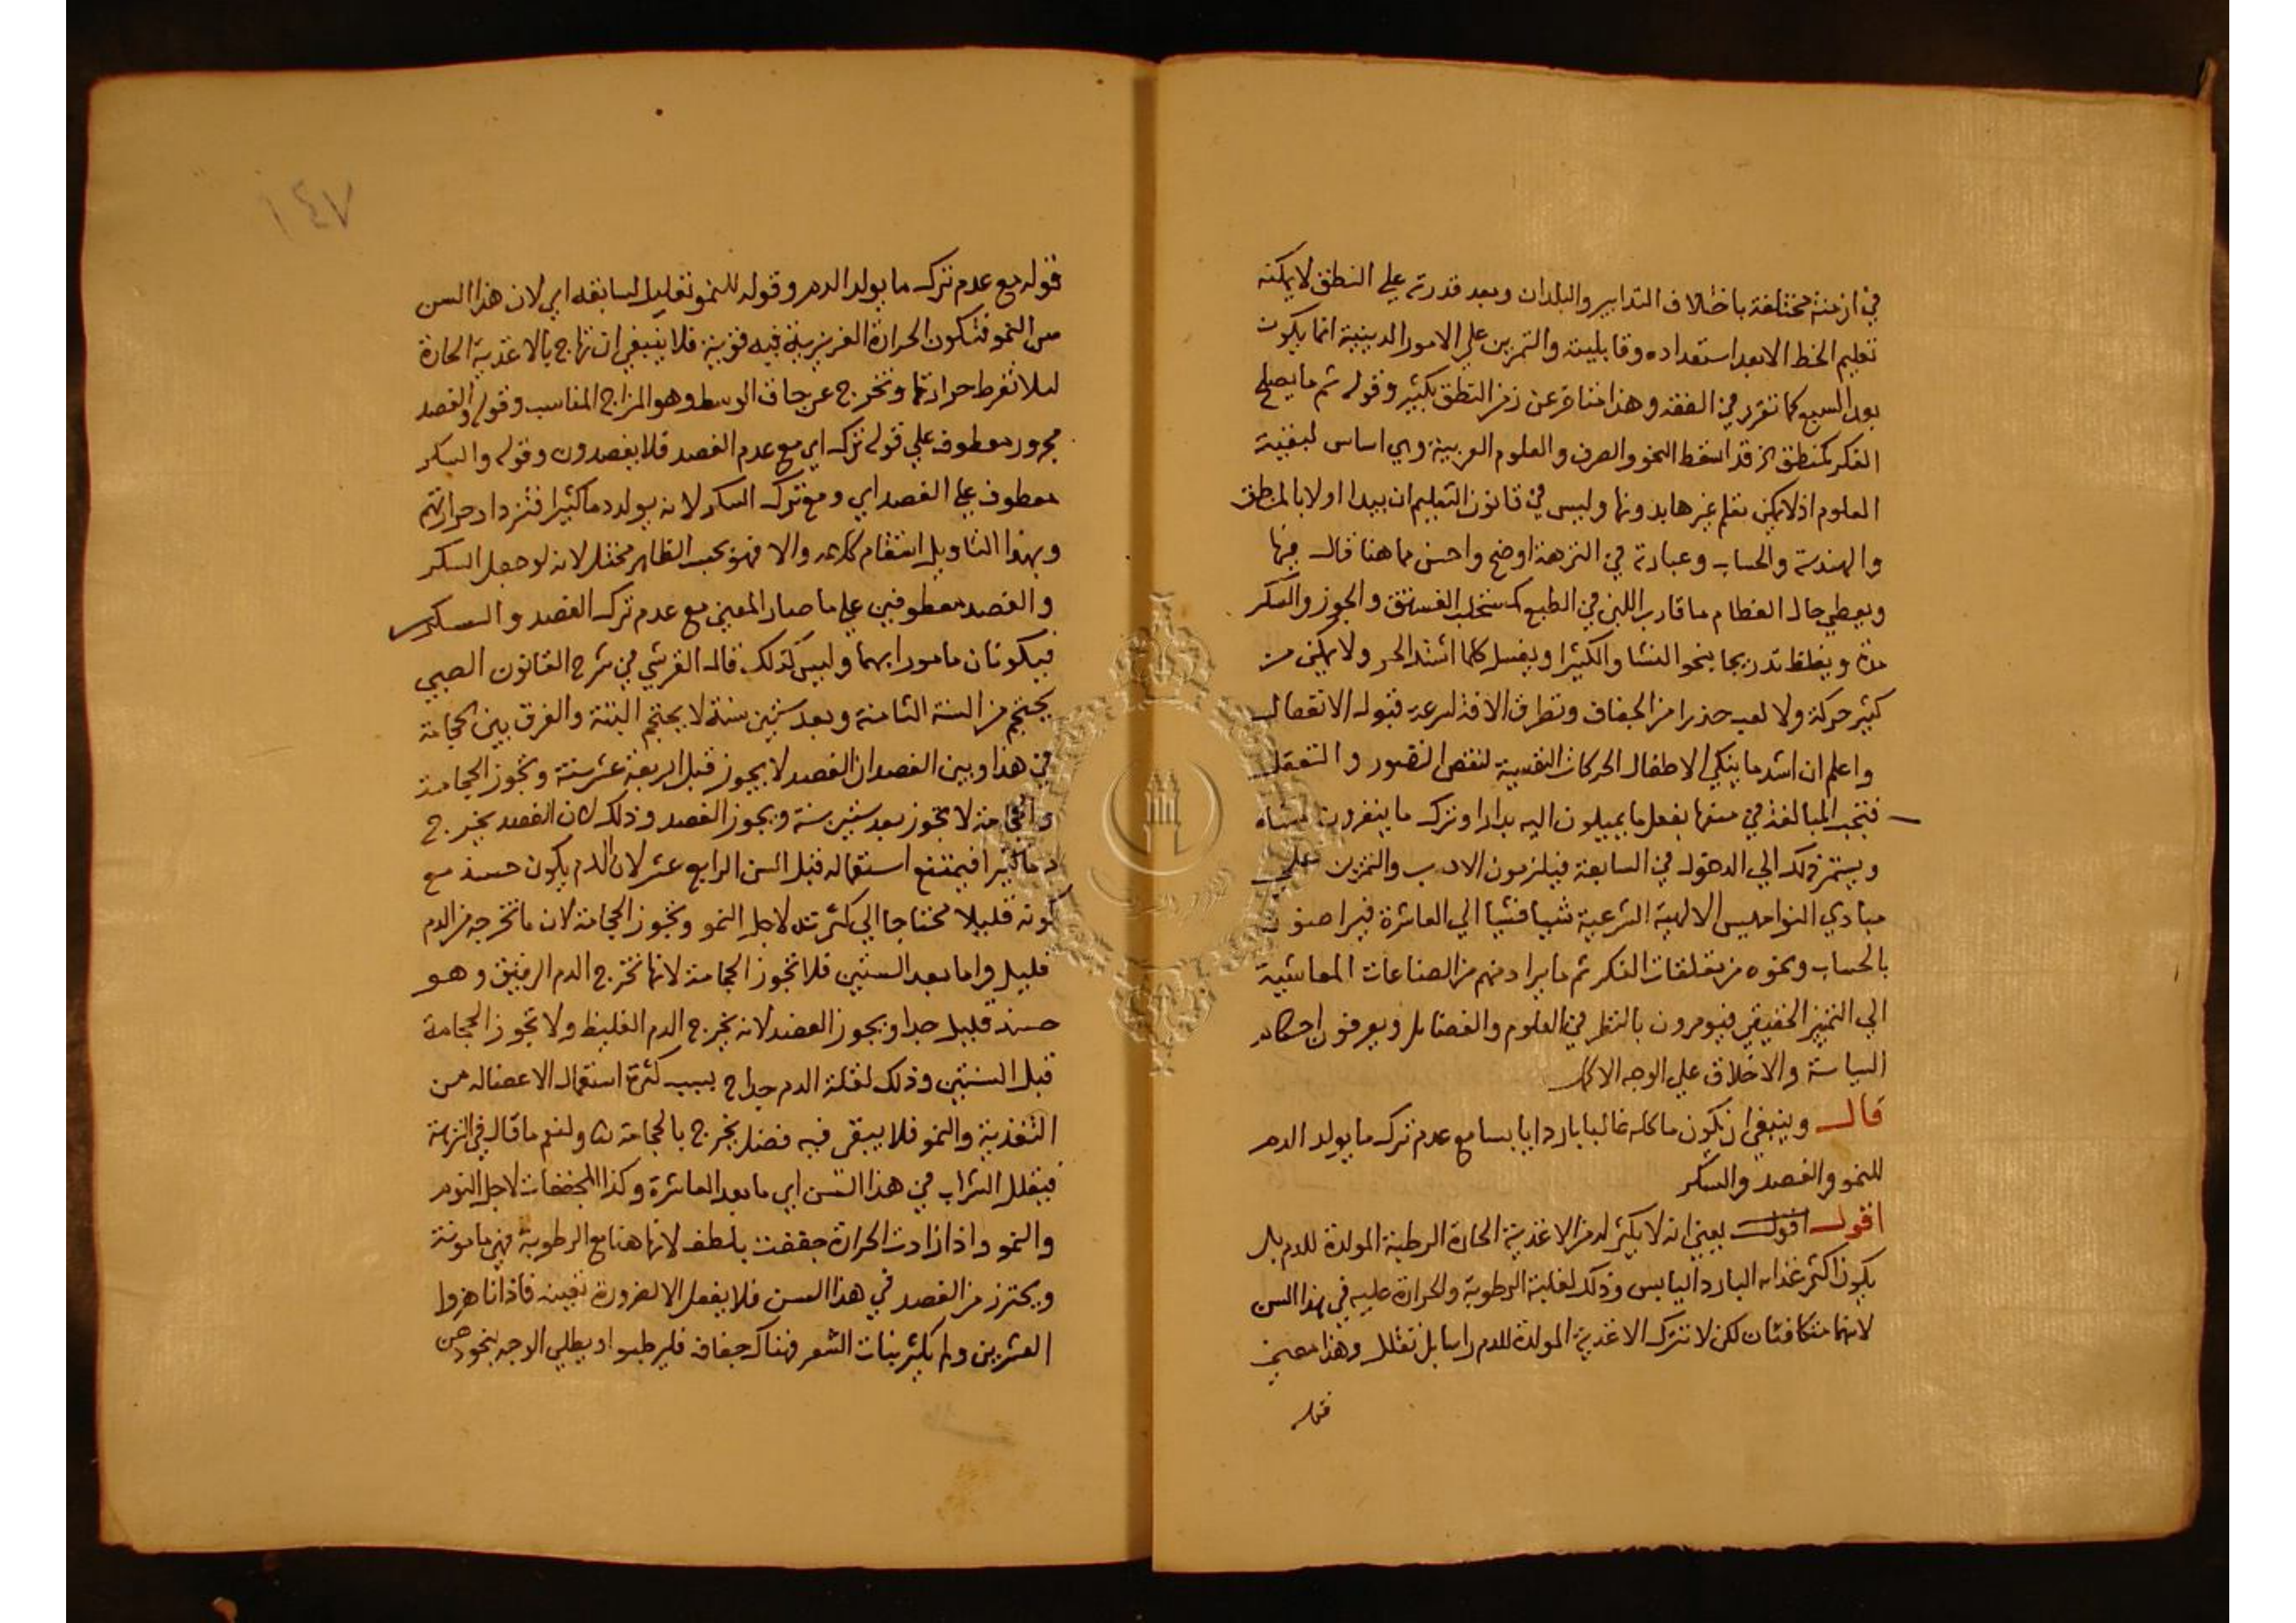 في ازمنة مختلفة باختلاف التدابير والبلدان وبعد قدرته علي النطق لا يمكنه
تعليم الخط الا بعد استعداده وقابليته والتمرين علي الامور الدينية انما يكون
بعد السبع كما تقرر في الفقه وهذا متاخر عن زمن النطق بكثير وقوله ثم ما يصلح
الفكر كمنطق الخ قد اسقط النحو والصرف والعلوم العربية وهي اساس لبقية
العلوم اذ لا يمكن تعلم غيرها بدونها وليس في قانون التعليم ان يبدا اولا بالمنطق
والهندسة والحساب وعبارته في النزهة اوضح واحسن مما هنا قال فيها
ويعطي حال الفطام ما قارب اللبن في الطبع كمستحلب الفستق والجوز والسكر
مدة ويغلظ تدريجا بنحو النشا والكثيرا ويغسل كلما اشتد الحر ولا يمكن من
كثير حركة ولا لعب حذرا من الجفاف وتطرق الافة لسرعة قبوله الانفعال
واعلم ان اشد ما ينكي الاطفال الحركات النفسية لنقص التصور والتعقل
فتجب المبالغة في منعها بفعل ما يميلون اليه بدارا وترك ما ينفرون منه
ويستمر ذلك الي الدخول في السابعة فيلزمون الادب والتمرين علي
مبادي النواميس الالهية الشرعية شيا فشيا الي العاشرة فيراضون
بالحساب ونحوه من تعلقات الفكر ثم ما يراد منهم من الصناعات المعاشية
الي التمييز الحقيقي فيومرون بالنظر في العلوم والفضايل ويعرفون احكام
السياسة والاخلاق علي الوجه الاكمل
قال وينبغي ان يكون ماكله غالبا باردا يابسا مع عدم ترك ما يولد الدم
للنمو والفصد والسكر
اقول اقول يعني انه لا يكثر له من الاغذية الحارة الرطبة المولدة للدم بل
يكون اكثر غذايه البارد اليابس وذلك لغلبة الرطوبة والحرارة عليه في هذا السن
لانهما متكافئتان لكن لا تترك الاغذية المولدة للدم راسا بل تقلل وهذا معني
قوله
١٤٧
قوله مع عدم ترك ما يولد الدم وقوله للنمو تعليل لسابقه اي لان هذا السن
سن النمو فتكون الحرارة الغريزية فيه قوية فلا ينبغي ان تهاج بالاغذية الحارة
ليلا تفرط حرارتها وتخرج عن حاق الوسط وهو المزاج المناسب وقوله والفصد
مجرور معطوف علي قوله ترك اي مع عدم الفصد فلا يفصدون وقوله والسكر
معطوف علي الفصد اي ومع ترك السكر لانه يولد دما كثيرا فتزداد حرارتهم
وبهذا التاويل استقام كلامه والا فهو بحسب الظاهر مختل لانه لو جعل السكر
والفصد معطوفين علي ما صار المعني مع عدم ترك الفصد والسكر
فيكونان مامورا بهما وليس كذلك قال القرشي في شرح القانون الصبي
يحتجم من السنة الثامنة وبعد ستين سنة لا يحتجم البتة والفرق بين الحجامة
في هذا وبين الفصد ان الفصد لا يجوز قبل اربعة عشر سنة وتجوز الحجامة
والحجامة لا تجوز بعد ستين سنة ويجوز الفصد وذلك لان الفصد يخرج
دما كثيرا فيمتنع استعماله قبل السن الرابع عشر لان الدم يكون حينئذ مع
كونه قليلا محتاجا الي كثرته لاجل النمو وتجوز الحجامة لان ما تخرجه من الدم
قليل واما بعد الستين فلا تجوز الحجامة لانها تخرج الدم الرقيق وهو
حينئذ قليل جدا ويجوز الفصد لانه يخرج الدم الغليظ ولا تجوز الحجامة
قبل السنتين وذلك لقلة الدم جدا ح بسبب كثرة استعمال الاعضا له من
التغذية والنمو فلا يبقي فيه فضل يخرج بالحجامة ولنعم ما قال في النزهة
فيقلل الشراب في هذا السن اي ما بعد العاشرة وكذا المجففات لاجل النوم
والنمو واذا زادت الحرارة جففت بلطف لانها هنا مع الرطوبة فهي مامونة
ويحترز من الفصد في هذا السن فلا يفعل الا لضرورة تعينه فاذا ناهزوا
العشرين ولم يكثر نبات الشعر فهناك جفاف فليرطبوا او يطلي الوجه بنحو دهن